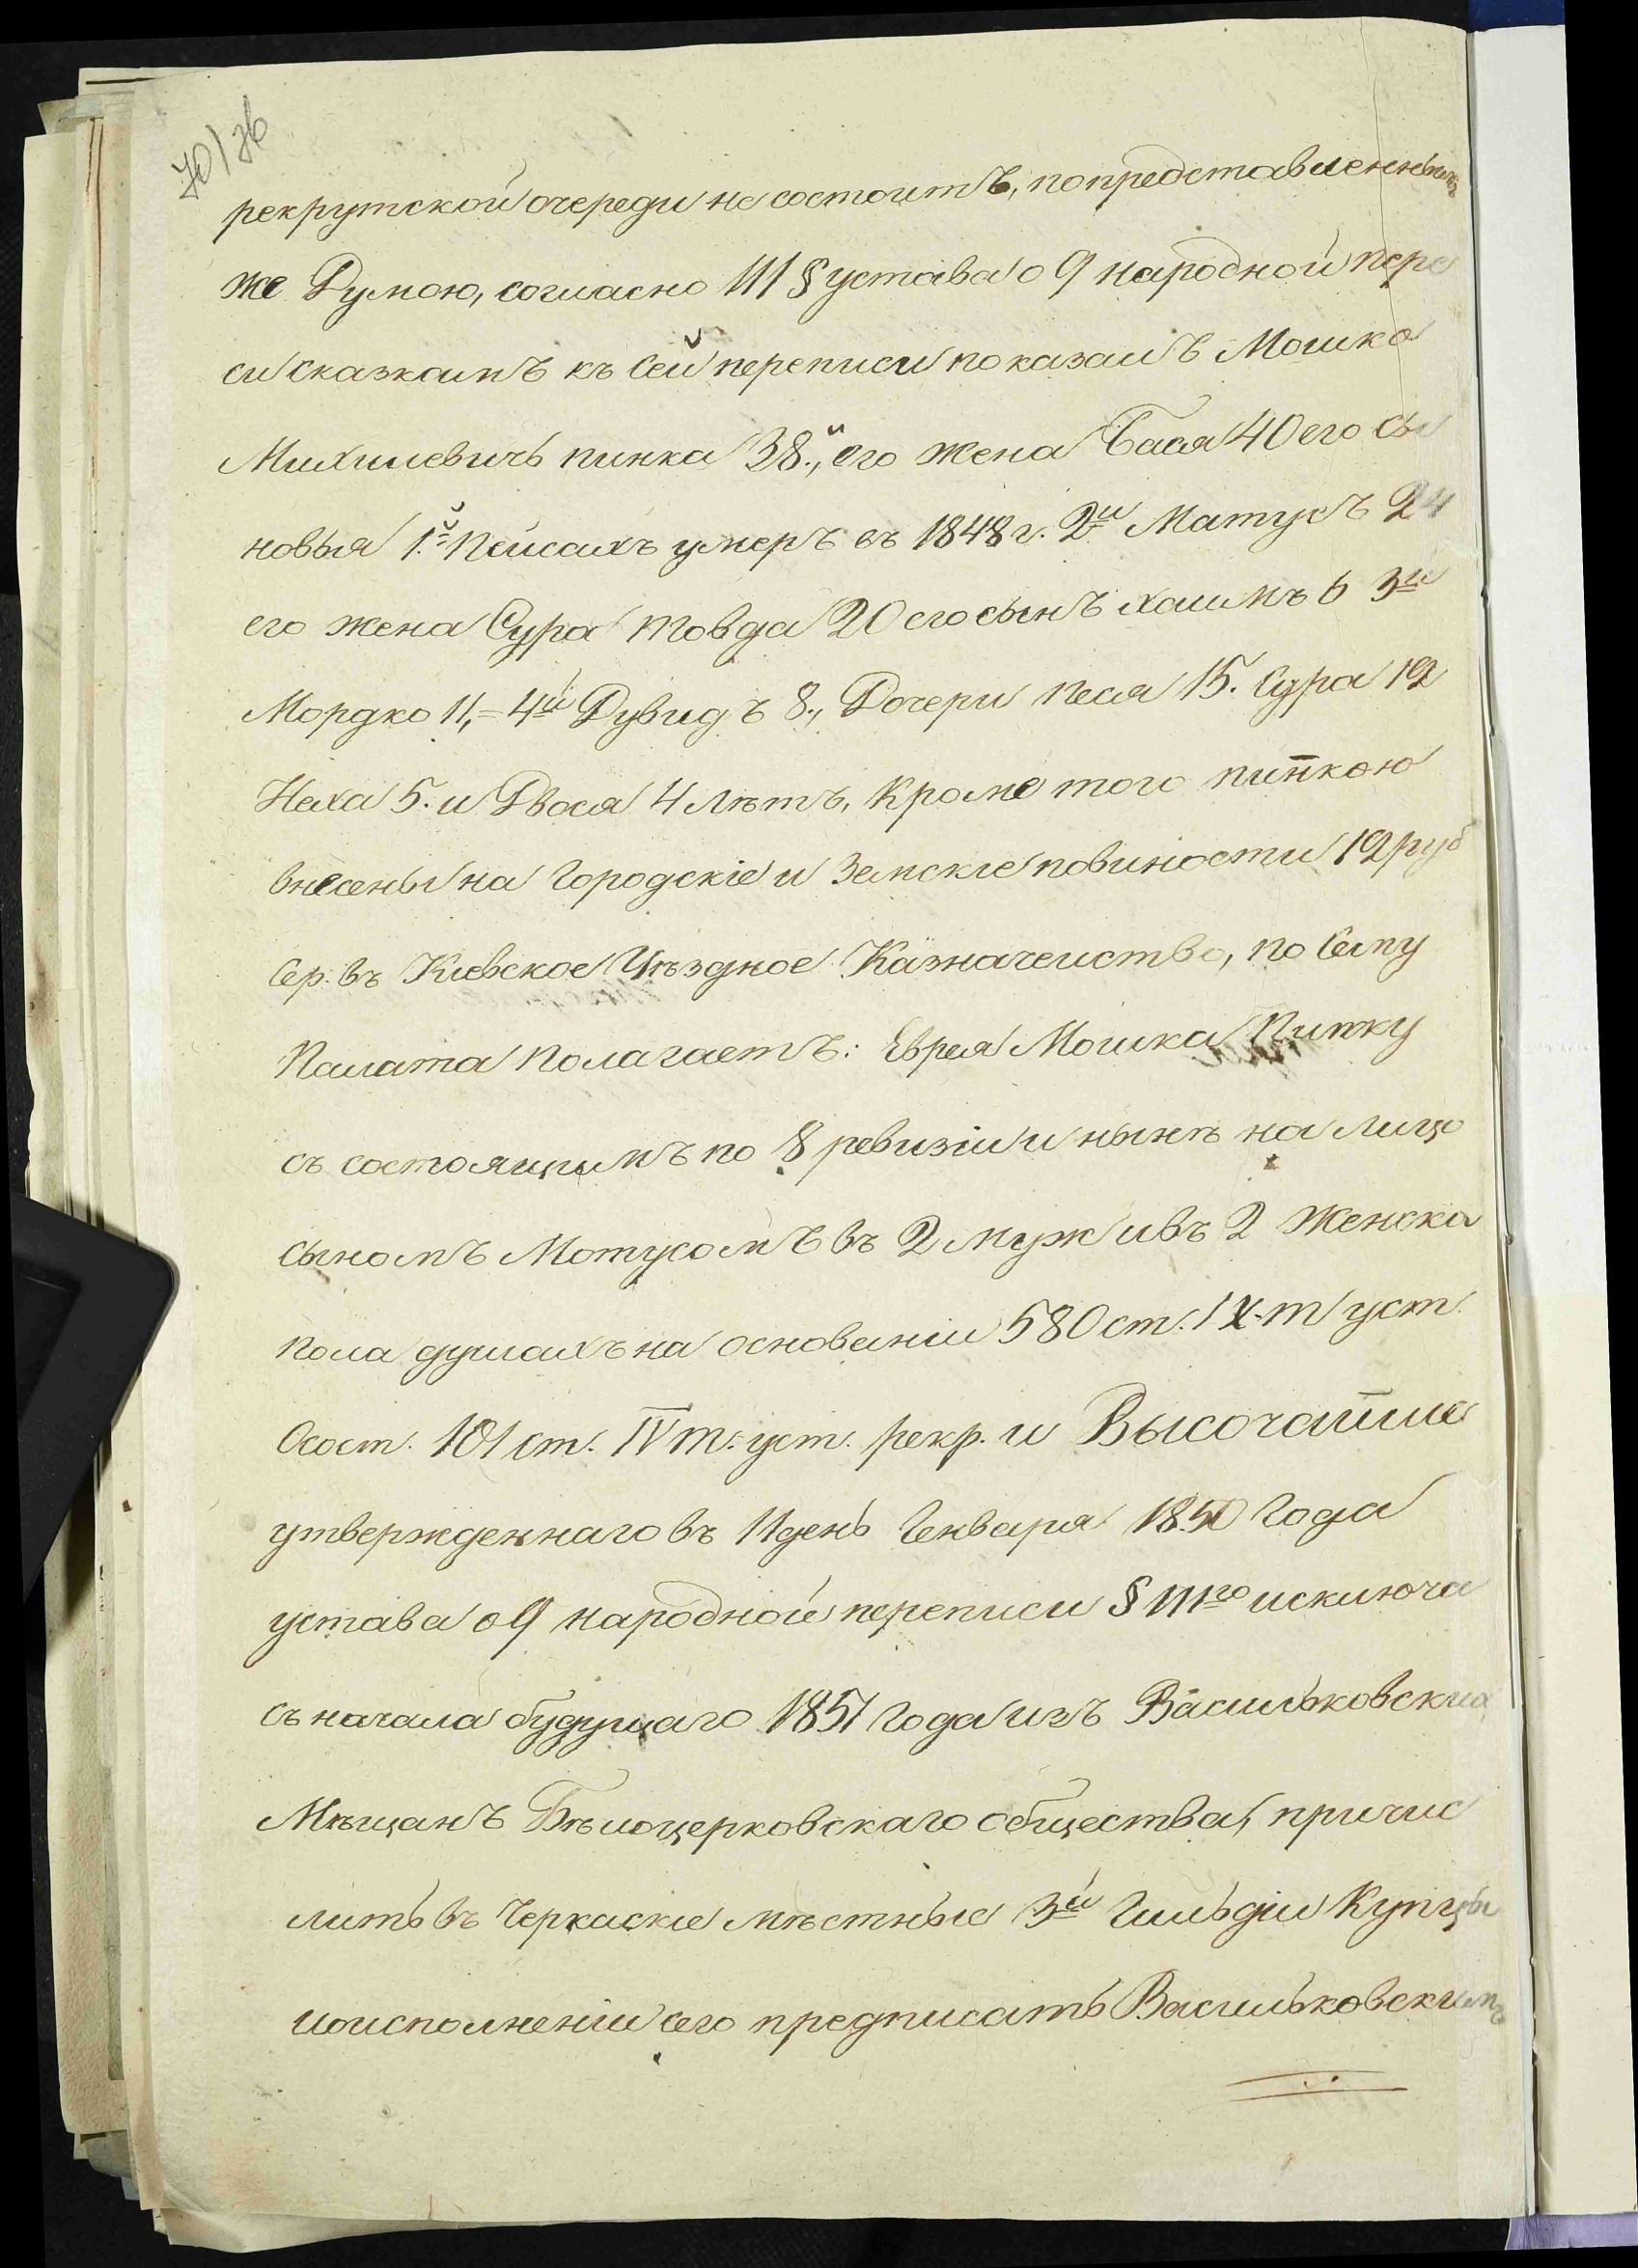 70/76
рекрутской очереди не состоитъ, по представленнымъ
же Думою, согласно 111 § устава о 9 народной пере
си сказкамъ къ сей переписи показанъ Мошко
Михилевичъ пинка 38., его жена Бася 40 его сы
новья 1.й Пейсахъ умеръ въ 1848 г. 2й Матусъ 24
его жена Сура Товда 20 его сынъ хаимъ 6 3й
Мордко 11,= 4й Дувидъ 8., Дочери Песя 15. Сура 12
Неха 5. и Двося 4 лѣтъ, Кроме того пинкою
внесены на Городскіе и Земскіе повиности 12 руб
Сер. въ Кіевское Уѣздное Казначейство, по Сему
Палата полагаетъ: Еврея Мошка Пинку
съ состоящимъ по 8 ревизіи и нынѣ на лицо
сыномъ Мотусомъ въ 2 муж и въ 2 женска
пола душахъ на основаніи 580 ст. IX-т уст.
Осост. 101 ст. IV т. уст. рекр. и Высочайше
утвержденнаго въ 11 день Генваря 1850 Года
устава о 9 народной переписи § 111го исключа
съ начала будущаго 1851 Года изъ Васильковских
Мѣщанъ Бѣлоцерковскаго общества, причис
лить въ Черкаскіе мѣстные 3й Гильдіи Купцы
и о исполненіи сего предписать Васильковскимъ